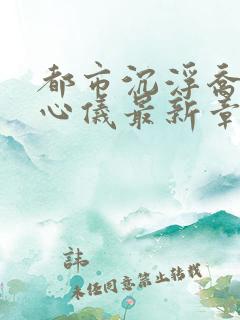 都市沉浮乔
心仪最新章
諱
未经同意禁止转载